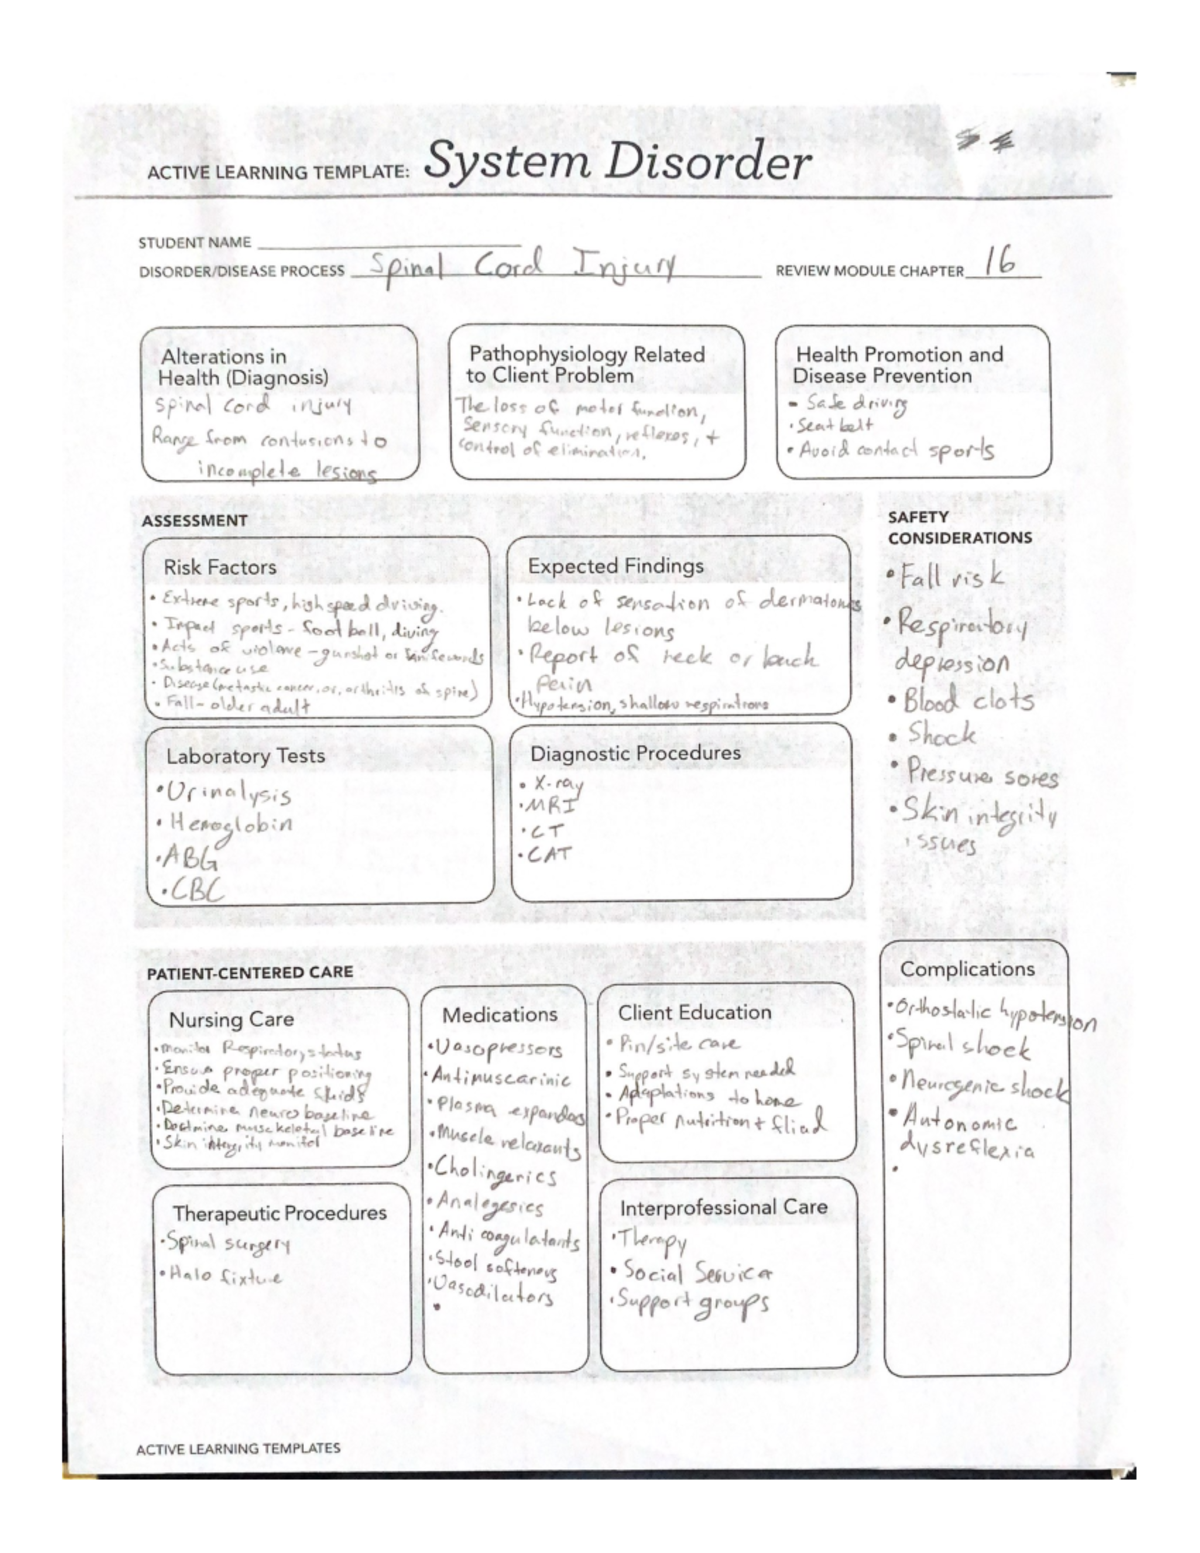 ACTIVE LEARNING TEMPLATE: System Disorder
STUDENT NAME
DISORDER/DISEASE PROCESS Spinal Cord Injury REVIEW MODULE CHAPTER 16
Alterations in
Health (Diagnosis)
Spinal cord injury
Range from contusions to
incomplete lesions
Pathophysiology Related
to Client Problem
The loss of motor function,
Sensory function, reflexes, +
control of elimination.
Health Promotion and
Disease Prevention
- Safe driving
• Seat belt
• Avoid contact sports
ASSESSMENT
Risk Factors
• Extreme sports, high speed driving.
• Impact sports - football, diving
• Acts of violence - gunshot or
• Substance use
• Disease (metastic cancer, or, arthritis of spine)
• Fall - older adult
Expected Findings
• Lack of sensation of dermatomes
below lesions
• Report of neck or back
pain
• Hypotension, shallow respirations
Laboratory Tests
• Urinalysis
• Hemoglobin
• ABG
• CBC
Diagnostic Procedures
• X-ray
• MRI
• CT
• CAT
SAFETY
CONSIDERATIONS
• Fall risk
• Respiratory
depression
• Blood clots
• Shock
• Pressure sores
• Skin integrity
issues
PATIENT-CENTERED CARE
Nursing Care
• Monitor Respiratory status
• Ensure proper positioning
• Provide adequate fluids
• Determine neuro baseline
• musckeletal baseline
• Skin integrity monitor
Medications
• Vasopressors
• Antimuscarinic
• Plasma expandas
• Muscle relaxants
• Cholingerics
• Analegesics
• Anti coagulatants
• Stool softeners
• Vasodilators
•
Client Education
• Pin/site care
• Support system needed
• Adaptations to home
• Proper nutrition + fliad
Therapeutic Procedures
• Spinal surgery
• Halo fixture
Interprofessional Care
• Therapy
• Social Service
• Support groups
Complications
• Orthostatic hypotension
• Spinal shock
• Neurogenic shock
• Autonomic
dysreflexia
•
ACTIVE LEARNING TEMPLATES